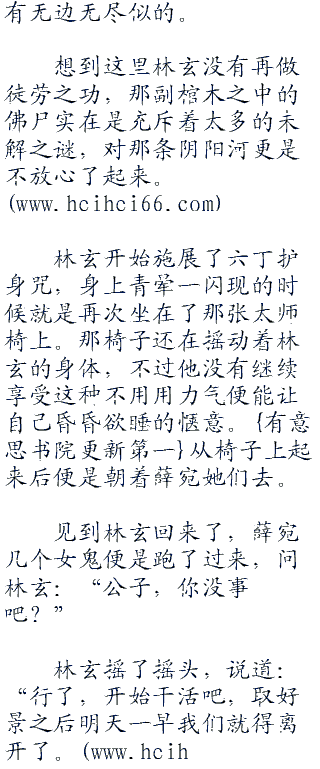 有无边无尽似的。
想到这里林玄没有再做
徒劳之功，那副棺木之中的
佛尸实在是充斥着太多的未
解之谜，对那条阴阳河更是
不放心了起来。
(www.hcihci66.com)
林玄开始施展了六丁护
身咒，身上青晕一闪现的时
候就是再次坐在了那张太师
椅上。那椅子还在摇动着林
玄的身体，不过他没有继续
享受这种不用用力气便能让
自己昏昏欲睡的惬意。{有意
思书院更新第一}从椅子上起
来后便是朝着薛宛她们去。
见到林玄回来了，薛宛
几个女鬼便是跑了过来，问
林玄：“公子，你没事
吧？”
林玄摇了摇头，说道：
“行了，开始干活吧，取好
景之后明天一早我们就得离
开了。(www.hcih